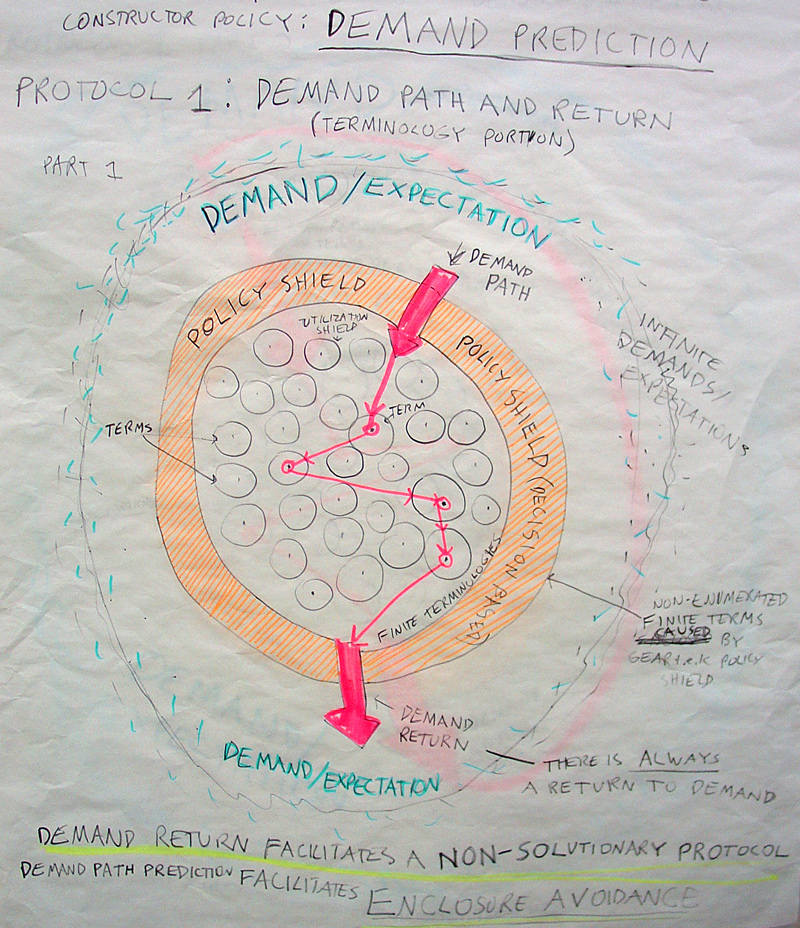 CONSTRUCTOR POLICY: DEMAND PREDICTION
PROTOCOL 1: DEMAND PATH AND RETURN
(TERMINOLOGY PORTION)
PART 1
DEMAND/EXPECTATION
DEMAND
PATH
POLICY SHIELD
UTILIZATION
SHIELD
POLICY SHIELD (DECISION BASED)
INFINITE
DEMANDS/
EXPECTATIONS
TERM
TERMS
FINITE TERMINOLOGIES
NON-ENUMERATED
FINITE TERMS
CAUSED BY
POLICY
SHIELD
DEMAND
RETURN
THERE IS ALWAYS
A RETURN TO DEMAND
DEMAND/EXPECTATION
DEMAND RETURN FACILITATES A NON-SOLUTIONARY PROTOCOL
DEMAND PATH PREDICTION FACILITATES ENCLOSURE AVOIDANCE